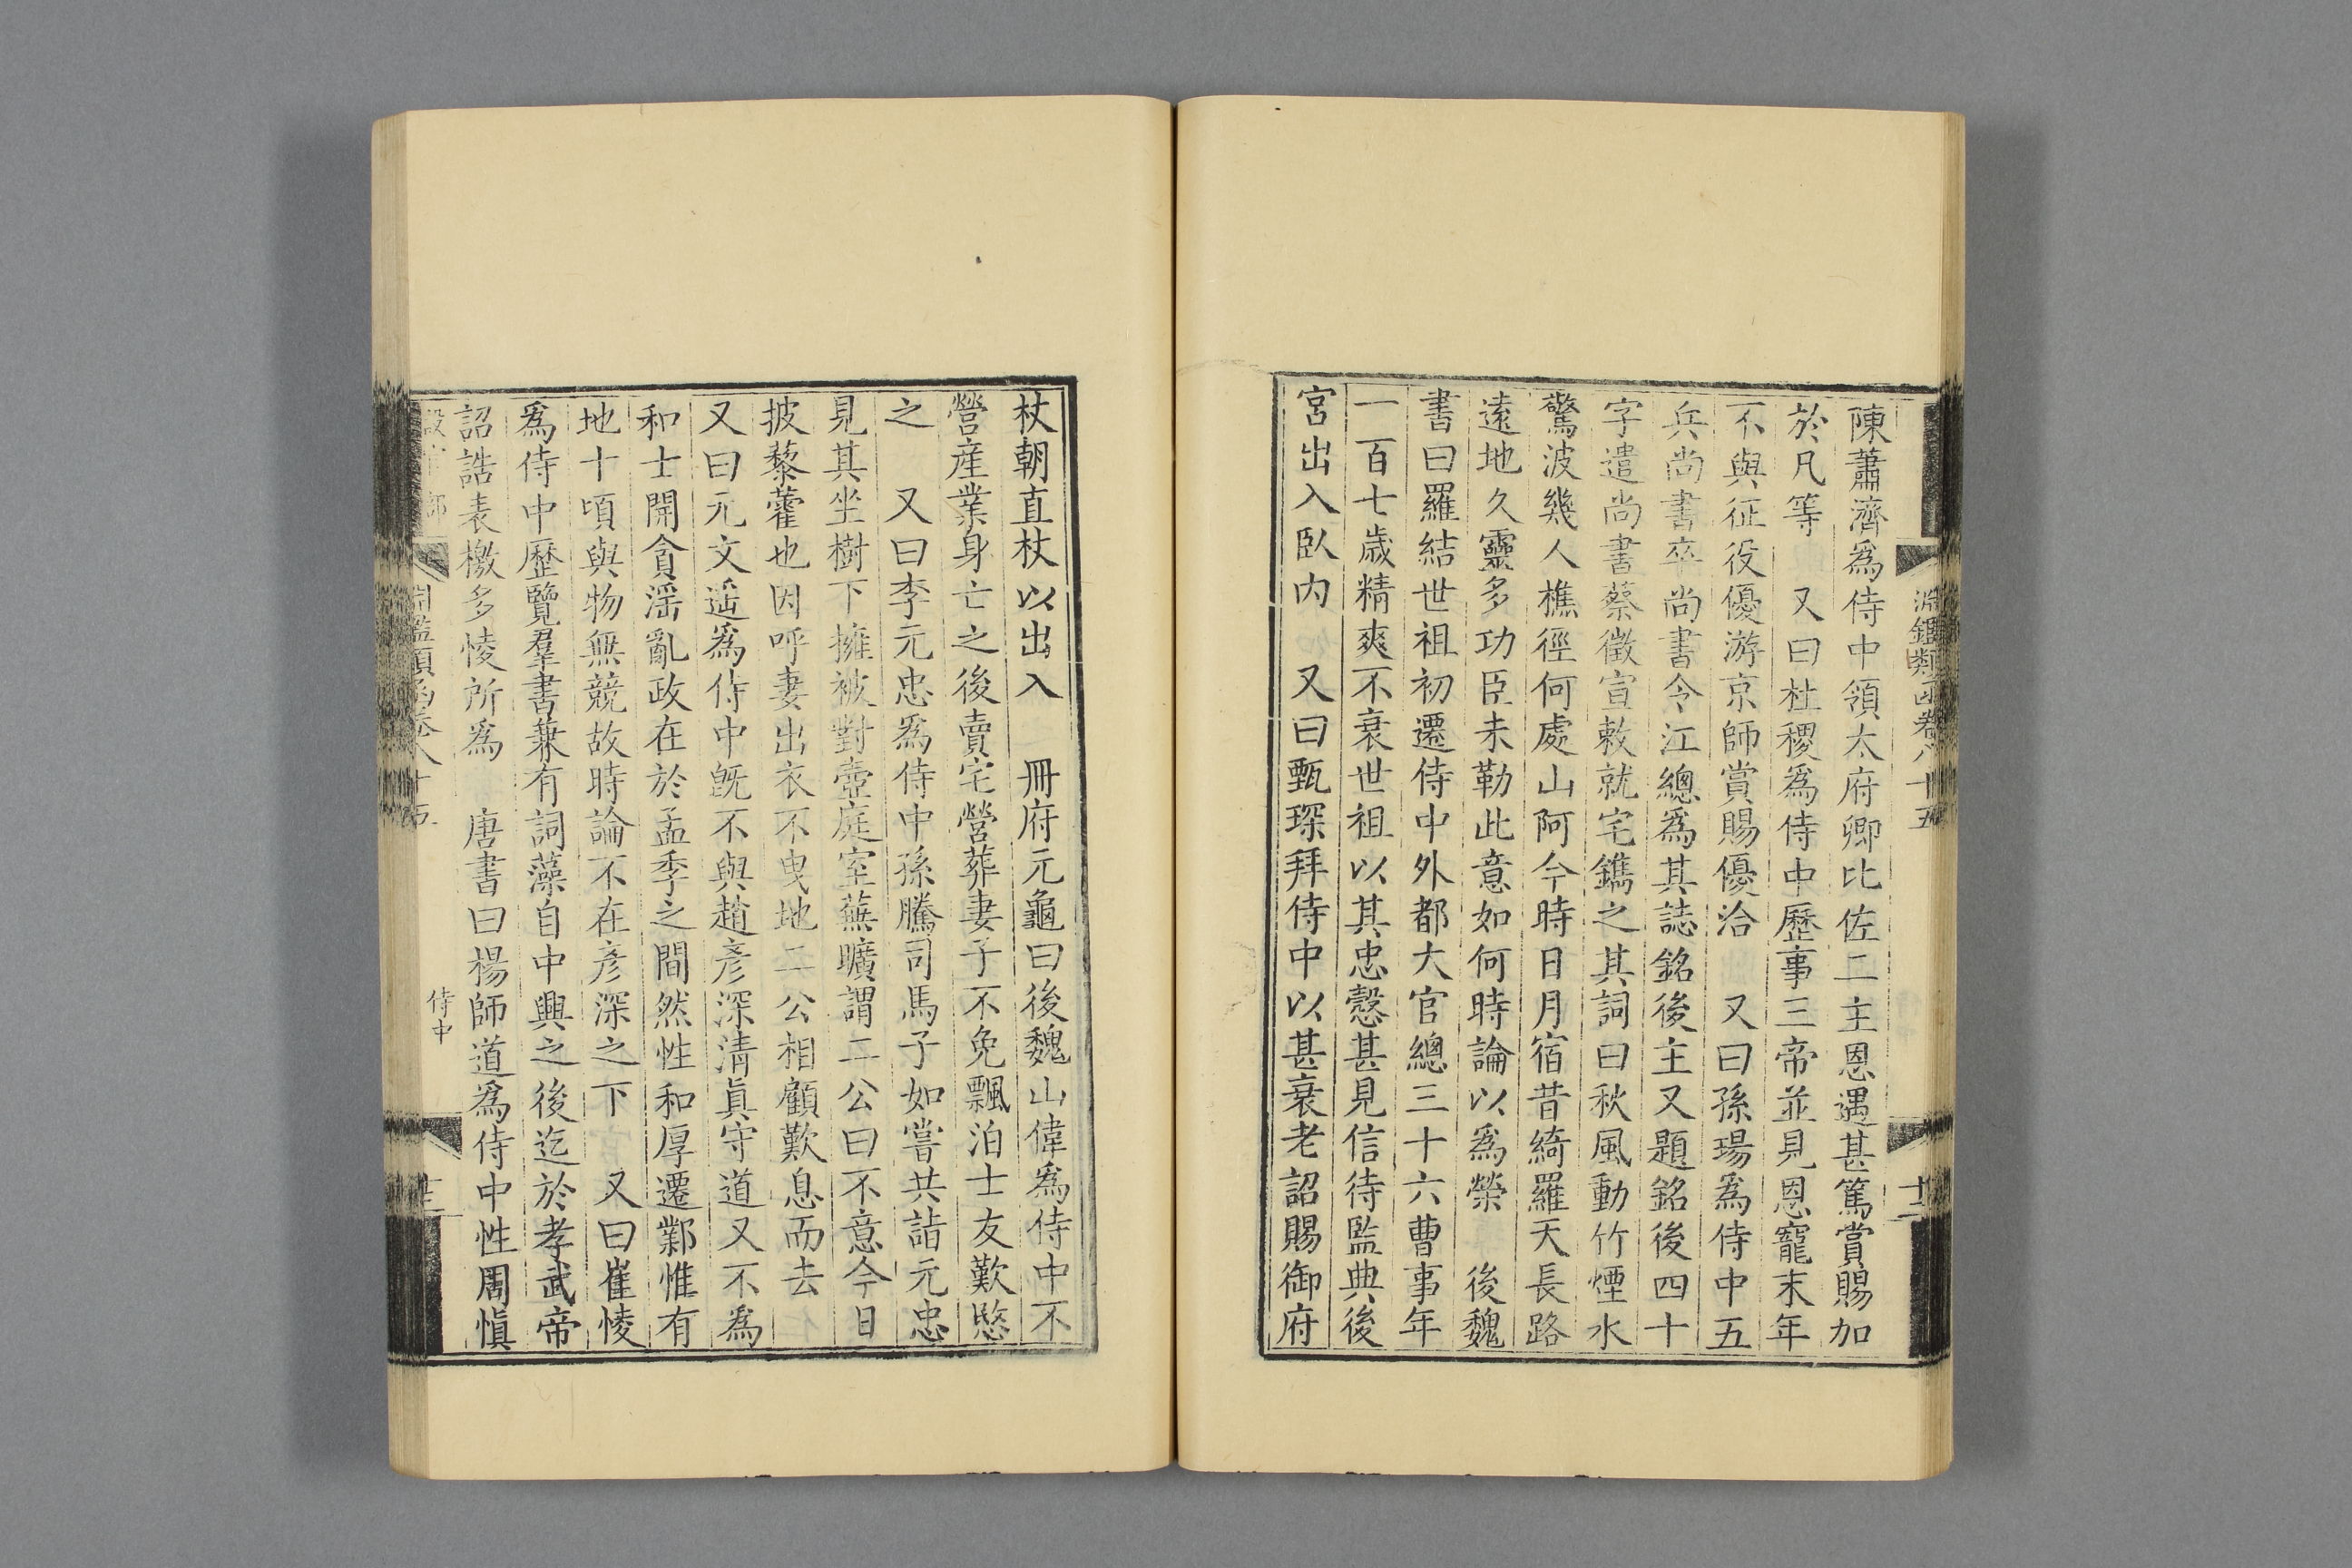 淵鑑類函卷八十五
十二
陳蕭濟爲侍中領太府卿比佐二主恩遇甚篤賞賜加
於凡等　又曰杜稷爲侍中歷事三帝並見恩寵末年
不與征役優游京師賞賜優洽　又曰孫瑒爲侍中五
兵尚書卒尚書令江總爲其誌銘後主又題銘後四十
字遣尚書蔡徵宣敕就宅鐫之其詞曰秋風動竹煙水
驚波幾人樵徑何處山阿今時日月宿昔綺羅天長路
遠地久靈多功臣未勒此意如何時論以爲榮　後魏
書曰羅結世祖初遷侍中外都大官總三十六曹事年
一百七歲精爽不衰世祖以其忠慤甚見信待監典後
宮出入臥內　又曰甄琛拜侍中以甚衰老詔賜御府
杖朝直杖以出入　冊府元龜曰後魏山偉爲侍中不
營産業身亡之後賣宅營葬妻子不免飄泊士友歎愍
之　又曰李元忠爲侍中孫騰司馬子如嘗共詣元忠
見其坐樹下擁被對壺庭室蕪曠謂二公曰不意今日
披藜藿也因呼妻出衣不曳地二公相顧歎息而去
又曰元文遥爲侍中既不與趙彥深清眞守道又不爲
和士開貪淫亂政在於孟季之間然性和厚遷鄴惟有
地十頃與物無競故時論不在彥深之下　又曰崔㥄
爲侍中歷覽羣書兼有詞藻自中興之後迄於孝武帝
詔誥表檄多㥄所爲　唐書曰楊師道爲侍中性周愼
淵鑑類函卷八十五
侍中